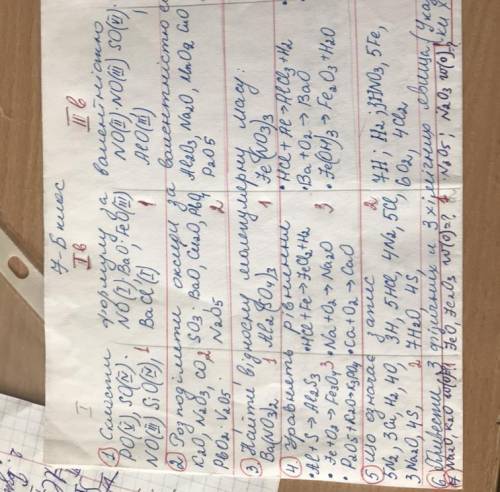 7-Б клас
I
IIв
IIIв
① Скласти формулу за валентністю
PO(V), SO(IV), NO(III) SiO(IV)
NO(I) BaO FeO(III) BaCl(I)
NO(II), NO(III) SO(IV), AlO(III)
1
1
② Розподіліть оксиди за валентністю
K2O, N2O3, CO2 PbO2 V2O5
SO3 BaO, Cu2O, PbO2 N2O5
Al2O3, Na2O, MnO2 CuO P2O5
2
③ Знайти відносну молекулярну масу:
Ba(NO3)2
Al2(SO4)3
Fe(NO3)3
1
1
④ Зрівняйть рівняння
• Al + S → Al2S3
• HCl + Fe → FeCl2 + H2
• HCl + Al → AlCl3 + H2
• Fe + O2 → Fe2O3
• Na + O2 → Na2O
• Ba + O2 → BaO
• P2O5 + H2O → H3PO4
• Ca + O2 → CaO
• Fe(OH)3 → Fe2O3 + H2O
3
3
⑤ Що означає запис
5Na, 3Cu, H2, 4O, 3Na2O, 4S,
3H, 5HCl, 4Na, 5Cl, 7H2O 4S,
7H; H2; 3HNO3, 5Fe, 6O2, 4Cl2
2
2
⑥ Наведіть 3 фізичних и 3 хімічних явища